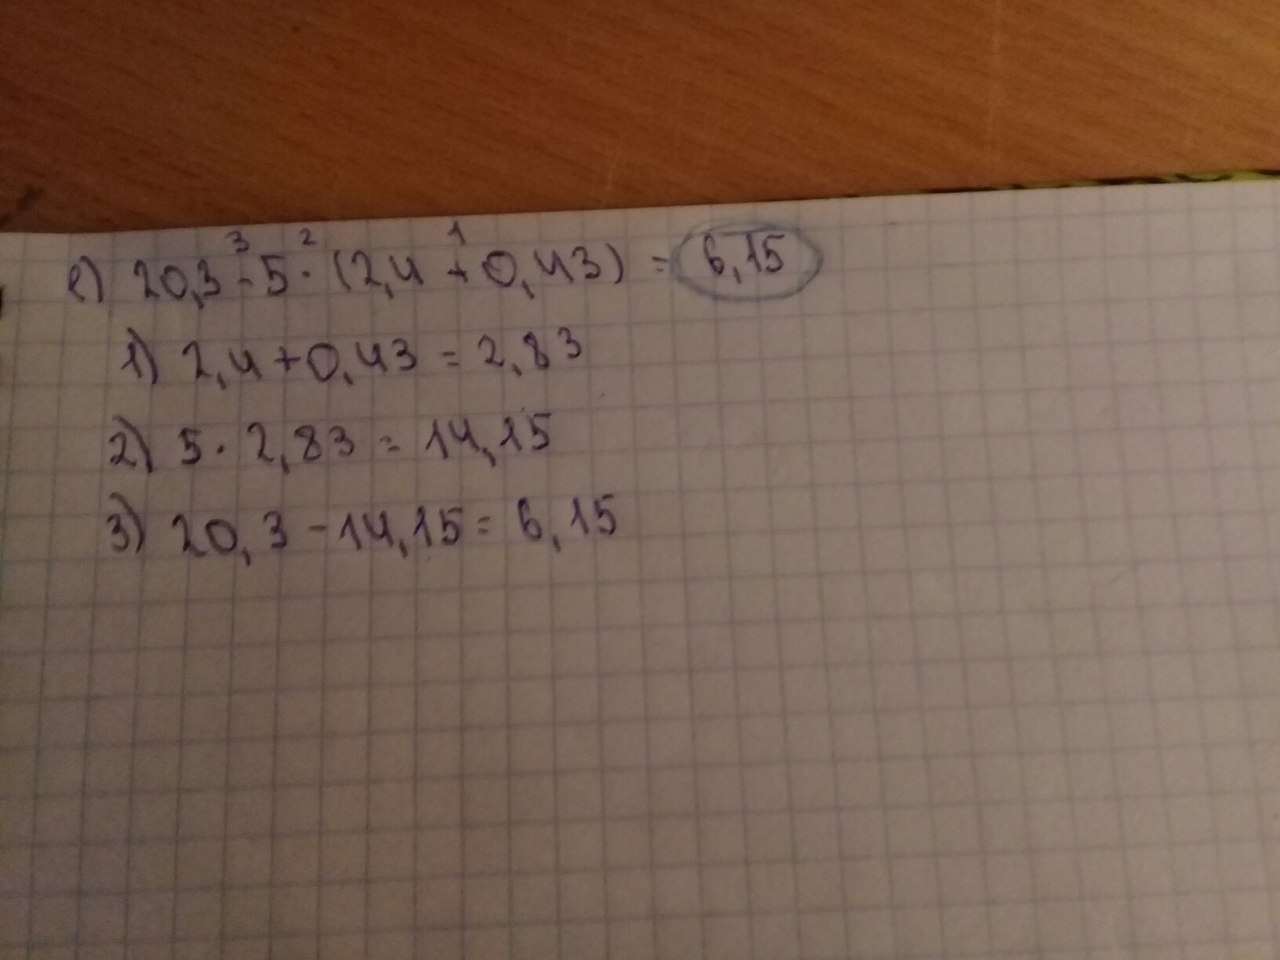 3 2 1
е) 20,3 - 5 · (2,4 + 0,43) = 6,15
1) 2,4 + 0,43 = 2,83
2) 5 · 2,83 = 14,15
3) 20,3 - 14,15 = 6,15